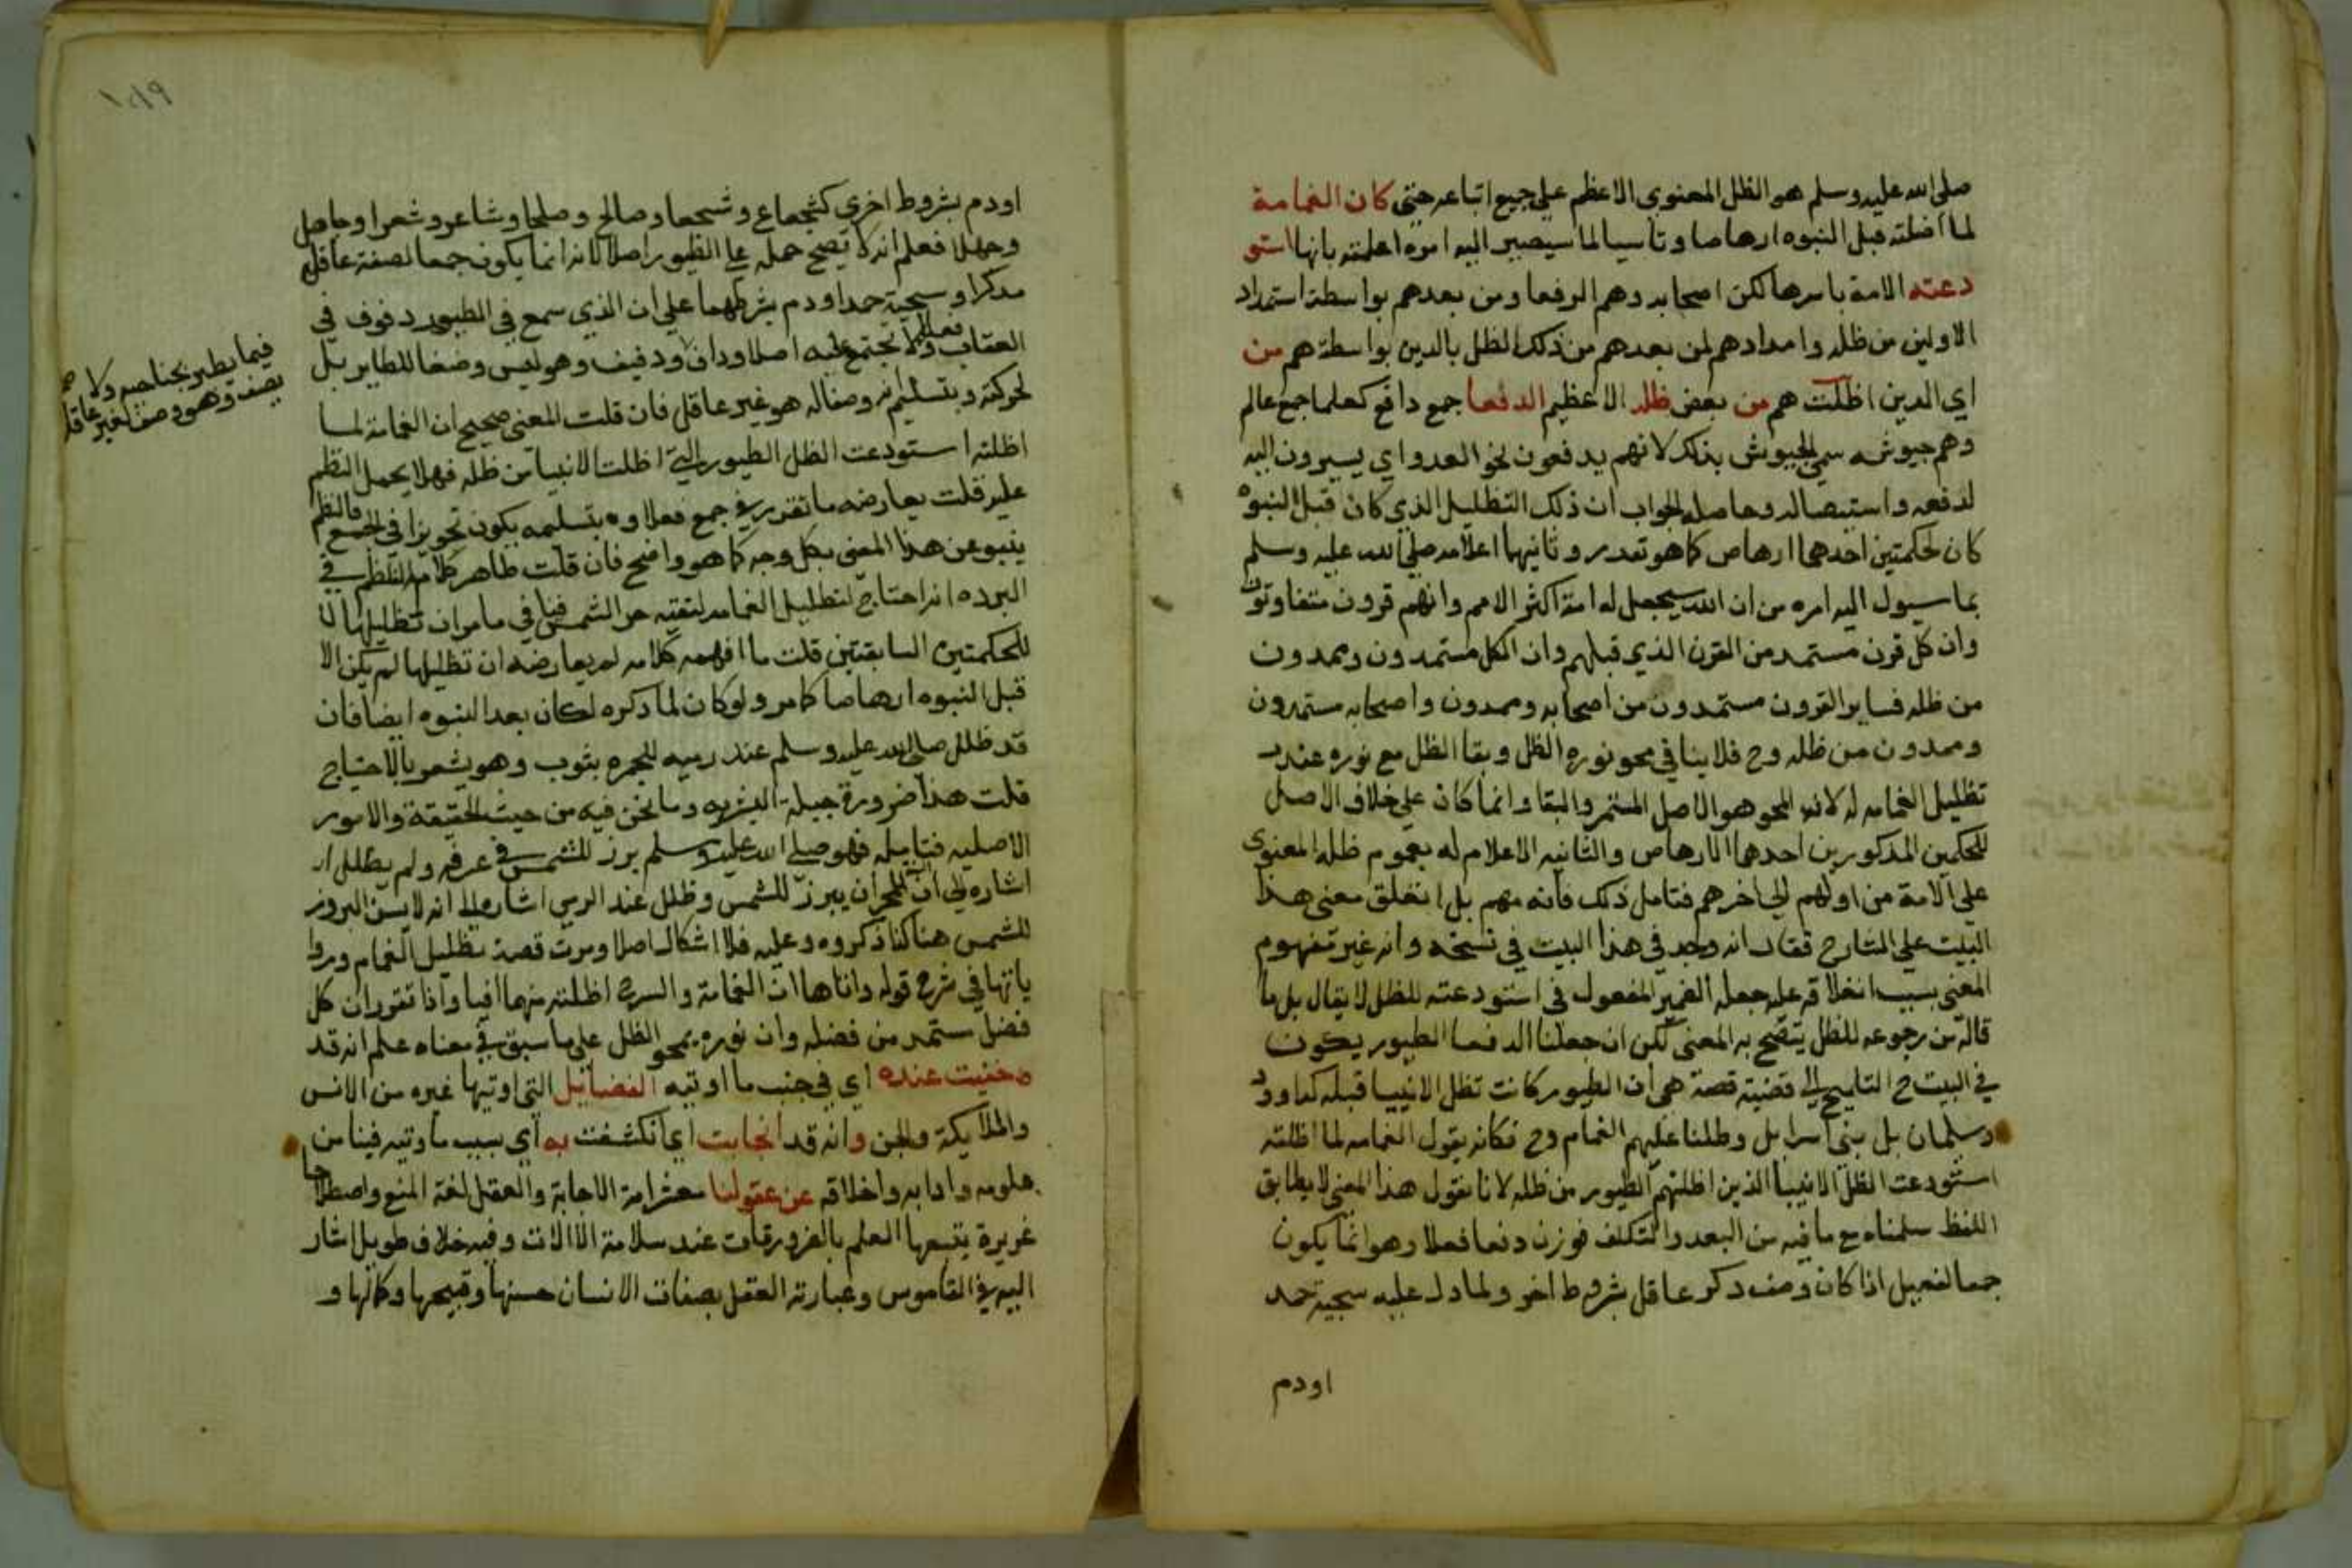 صلى الله عليه وسلم هو الظل المعنوي الاعظم على جميع اتباعه حتى كان الغمامة
لما اظلته قبل النبوه ارهاصا وتاسيا لما سيصير اليه امره اعلمته بانها استو
دعته الامة باسرها لكن اصحابه وهم الرفعا ومن بعدهم بواسطة استمداد
الاولين من ظله وامدادهم لمن بعدهم من ذلك الظل بالدين بواسطة هم من
اي الدين اظلت هم من بعض ظله الاعظيم الدفعا جمع دافع كعلما جمع عالم
وهم جيوشه سمي الجيوش بذلك لانهم يدفعون نحو العدو اي يسيرون اليه
لدفعه واستيصاله وحاصل الجواب ان ذلك التظليل الذي كان قبل النبوه
كان لحكمتين احدهما ارهاص كما هو تقدر وثانيهما اعلامه صلى الله عليه وسلم
بما سيول اليه امره من ان الله سيجعل له امة اكثر الامم وانهم قرون متفاوتون
وان كل قرن مستمد من القرن الذي قبلهم وان الكل مستمدون وممدون
من ظله فساير القرون مستمدون من اصحابه وممدون واصحابه مستمدون
وممدون من ظله وح فلا ينافي محو نوره الظل وبقا الظل مع نوره عند
تظليل الغمامه له لان المحو هو الاصل المستمر والبقا وانما كان على خلاف الاصل
للحكمين المذكورين احدهما الارهاص والثانيه الاعلام له بعموم ظله المعنوى
على الامة من اولهم الى اخرهم فتامل ذلك فانه مهم بل انغلق معنى هذا
البيت على الشارح فقال انه وجد في هذا البيت في نسخه وانه غير مفهوم
المعنى بسبب انغلاقه عليه جعله الضمير المفعول في استودعته للظل لا يقال بل ما
قاله من رجوعه للظل يتضح به المعنى لكن ان جعلنا الدفعا الطيور يكون
في البيت ح التلميح الى قضية قصة هي ان الطيور كانت تظل الانبيا قبله كداوود
وسليمان بل بنى اسرايل وظللنا عليهم الغمام وح فكانه يقول الغمامه لما اظلته
استودعت الظل الانبيا الذين اظلتهم الطيور من ظله لانا نقول هذا المعنى لا يطابق
اللفظ سلمناه مع ما فيه من البعد والتكلف فوزن دفعا فعلا وهو انما يكون
جمعا لفعيل اذا كان وصف دكر عاقل بشروط اخر ولما دل عليه سجية حمد
اودم
١٠١٩
اودم بشروط اخري كشجعاع وشجعا وصالح وصلحا وشاعر وشعرا وجاهل
وجهلا فعلم انه لا يصح حمله على الطيور اصلا لانه انما يكون جمعا لصفة عاقل
مدكر او سجية حمد اودم بشرطهما على ان الذي سمع في الطيور دفوف في
العقاب ولا تجتمع عليه اصلا ودافٍ ودفيف وهو ليس وضعا للطاير بل
لحركته وبتسليم انه وصف له هو غير عاقل فان قلت المعنى صحيح ان الغمامة لما
اظلته استودعت الظل الطيور التي اظلت الانبيا من ظله فهلا يحمل النظم
عليه قلت يعارضه ما تقرر في جمع فعلا وبتسليمه يكون تجويزا في الجمع فالنظم
ينبو عن هذا المعنى بكل وجه كما هو واضح فان قلت ظاهر كلامه النظم في
البرده انه احتاج لتظليل الغمامه لتقيه حر الشمس فينافي ما مر ان تظليلها لا
للحكمتين السابقتين قلت ما افهمه كلامه لم يعارضه ان تظليلها لم يكن الا
قبل النبوه ارهاصا كما مر ولو كان لما دكره لكان بعد النبوه ايضا فان
قد ظلل صلى الله عليه وسلم عند رميه للجمره بثوب وهو يشعر بالاحتياج
قلت هذا ضرورة جبيلة البشريه وما نحن فيه من حيث الحقيقة والامور
الاصليه فتامله فهو صلى الله عليه وسلم برز للشمس في عرفه ولم يظلل
اشاره الى ان للمحرم ان يبرز للشمس وظلل عند الرمي اشاره الى انه لا يسن البروز
للشمس هناك كذا ذكروه وعليه فلا اشكال اصلا ومرت قصة تظليل الغمام
ياتها في شرح قوله واتاها ان الغمامة والسرح اظلته منهما افيا واذا تقرر ان كل
فضل ستمد من فضله وان نوره يمحو الظل على ما سبق في معناه علم انه قد
خفيت عنده اي في جنب ما اوتيه الفضايل التي اوتيها غيره من الانس
والملايكة والجن وانه قد انجابت اي انكشفت به اي بسبب ما وتيه فينا من
علومه وادابه واخلاقه عن عقولنا معشر امة الاجابة والعقل لغة المنع واصطلاحا
غريزة يتبعها العلم بالضرورقات عند سلامة الالات وفيه خلاف طويل اشار
اليه في القاموس وعبارته العقل بصفات الانسان حسنها وقبيحها وكمالها و
فيما يطير بجناحيه ولا
يصف وهو وصف لغير عاقل